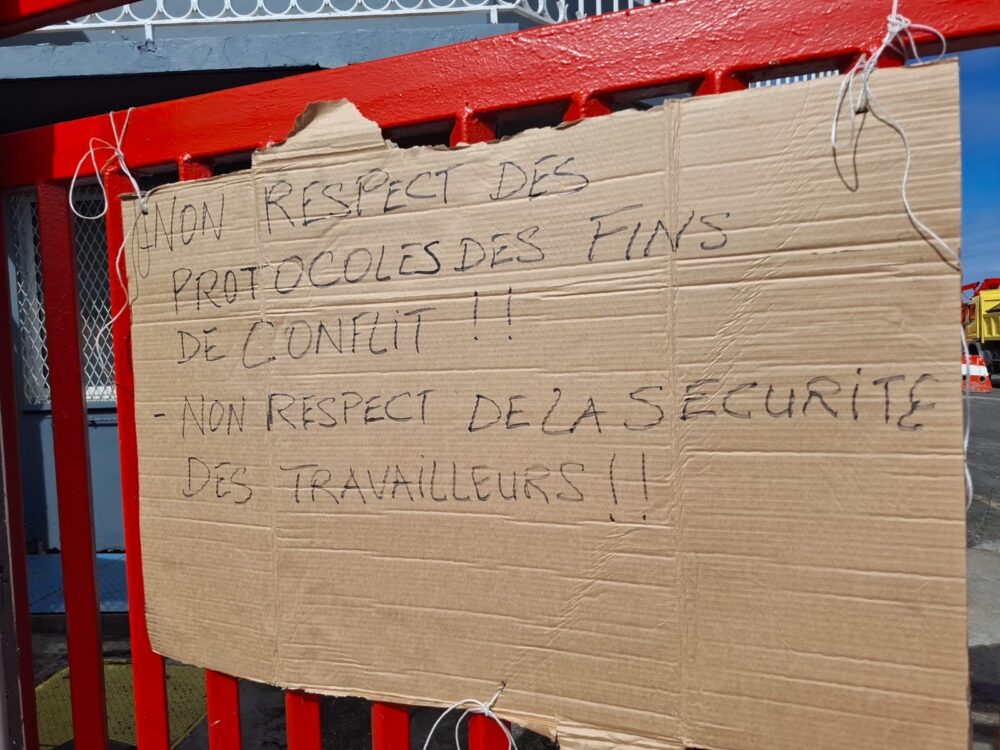 - NON RESPECT DES
PROTOCOLES DES FINS
DE CONFLIT !!
- NON RESPECT DE LA SECURITE
DES TRAVAILLEURS !!